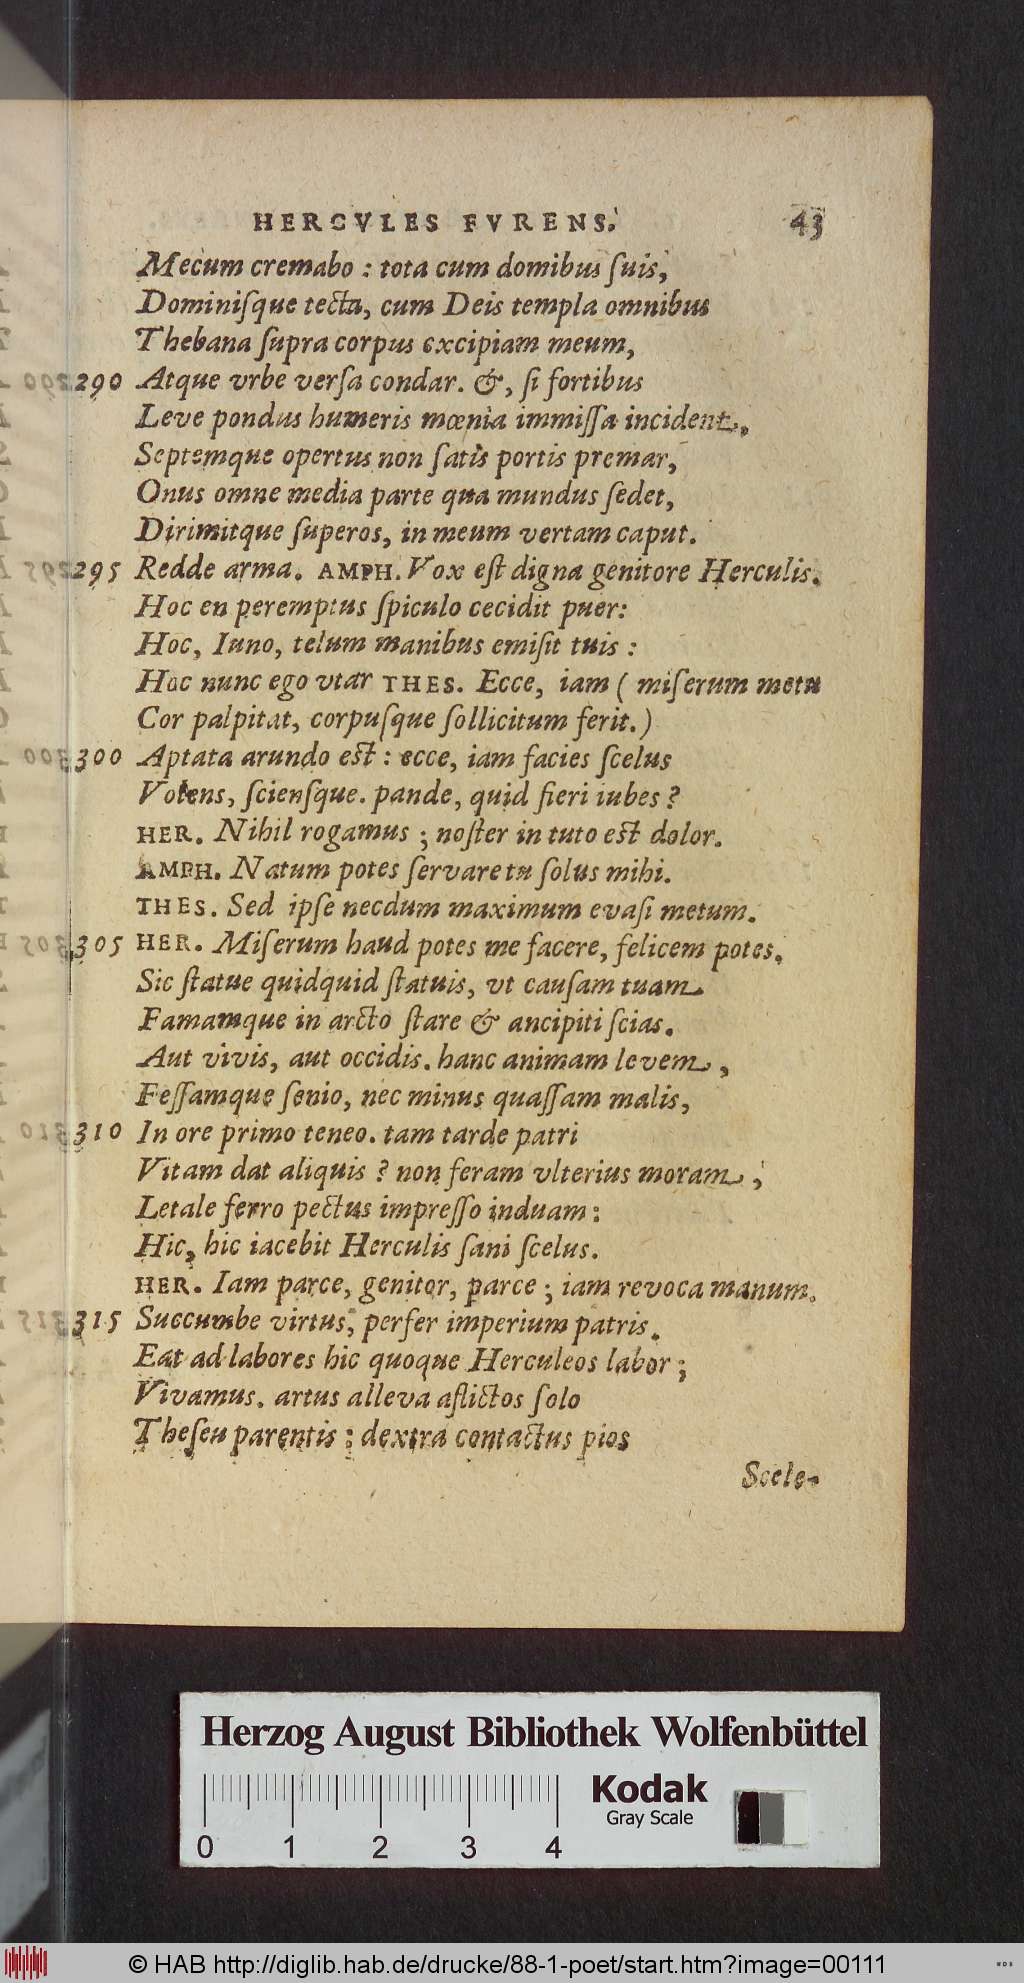 HERCVLES FVRENS. 43
Mecum cremabo : tota cum domibus ſuis,
Dominiſque tecta, cum Deis templa omnibus
Thebana ſupra corpus excipiam meum,
290 Atque vrbe verſa condar. &, ſi fortibus
Leve pondus humeris mœnia immiſſa incident,
Septemque opertus non ſatis portis premar,
Onus omne media parte qua mundus ſedet,
Dirimitque ſuperos, in meum vertam caput.
295 Redde arma. AMPH. Vox eſt digna genitore Herculis.
Hoc en peremptus ſpiculo cecidit puer:
Hoc, Iuno, telum manibus emiſit tuis :
Hoc nunc ego vtar THES. Ecce, iam ( miſerum metu
Cor palpitat, corpuſque ſollicitum ferit.)
300 Aptata arundo eſt : ecce, iam facies ſcelus
Volens, ſcienſque. pande, quid fieri iubes ?
HER. Nihil rogamus ; noſter in tuto eſt dolor.
AMPH. Natum potes ſervare tu ſolus mihi.
THES. Sed ipſe necdum maximum evaſi metum.
305 HER. Miſerum haud potes me facere, felicem potes.
Sic ſtatue quidquid ſtatuis, vt cauſam tuam
Famamque in arcto ſtare & ancipiti ſcias.
Aut vivis, aut occidis. hanc animam levem,
Feſſamque ſenio, nec minus quaſſam malis,
310 In ore primo teneo. tam tarde patri
Vitam dat aliquis ? non feram vlterius moram ;
Letale ferro pectus impreſſo induam:
Hic, hic iacebit Herculis ſani ſcelus.
HER. Iam parce, genitor, parce ; iam revoca manum.
315 Succumbe virtus, perfer imperium patris.
Eat ad labores hic quoque Herculeos labor ;
Vivamus. artus alleva aflictos ſolo
Theſeu parentis : dextra contactus pios
Scele-
Herzog August Bibliothek Wolfenbüttel
Kodak
Gray Scale
0 1 2 3 4
© HAB http://diglib.hab.de/drucke/88-1-poet/start.htm?image=00111